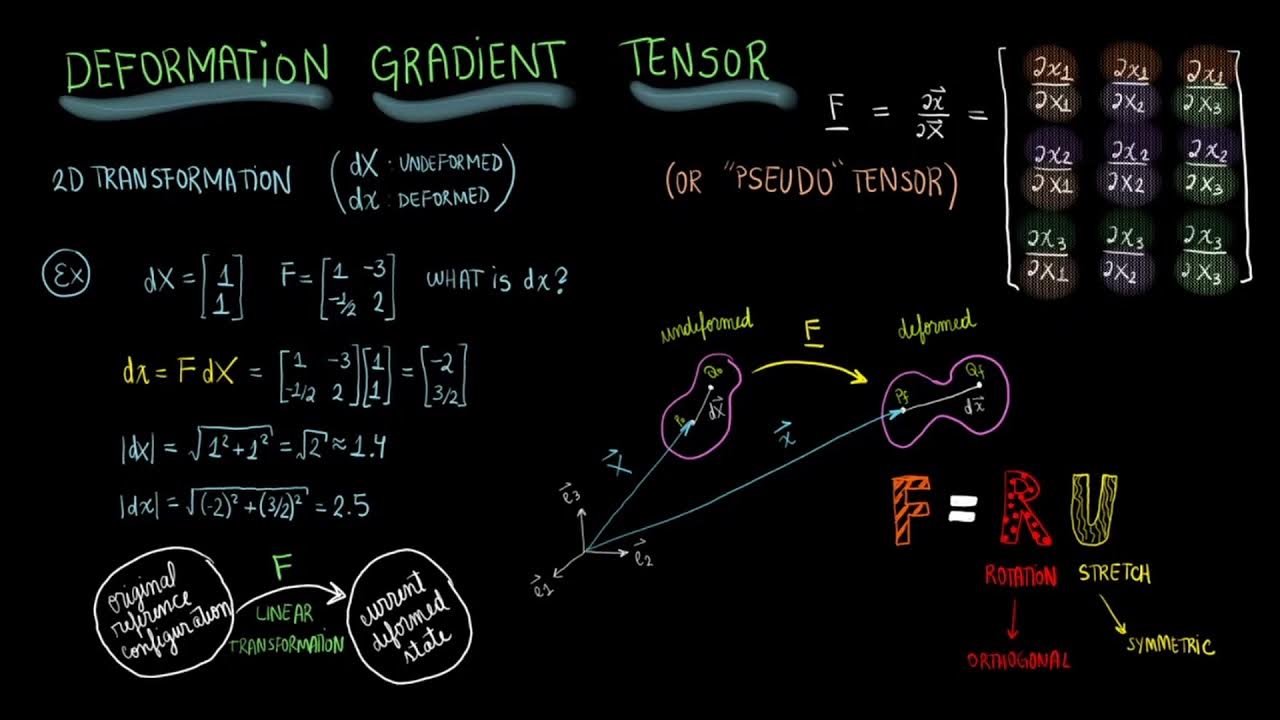 DEFORMATION GRADIENT TENSOR
F = ∂x⃗/∂X⃗ = [∂x₁/∂X₁ ∂x₁/∂X₂ ∂x₁/∂X₃
∂x₂/∂X₁ ∂x₂/∂X₂ ∂x₂/∂X₃
∂x₃/∂X₁ ∂x₃/∂X₂ ∂x₃/∂X₃]
(OR "PSEUDO" TENSOR)
2D TRANSFORMATION
(dX : UNDEFORMED
dx : DEFORMED)
Ex
dX = [1 F = [1 -3 WHAT is dx?
1] -1/2 2]
dx = F dX = [1 -3 [1 = [-2
-1/2 2] 1] 3/2]
|dX| = √(1² + 1²) = √2 ≈ 1.4
|dx| = √((-2)² + (3/2)²) = 2.5
original
reference
configuration
F
LINEAR
TRANSFORMATION
current
deformed
state
undeformed
F
deformed
Q₀
P₀
dX⃗
Qf
Pf
dx⃗
X⃗
x⃗
e⃗₃
e⃗₂
e⃗₁
F = R U
ROTATION STRETCH
ORTHOGONAL
SYMMETRIC